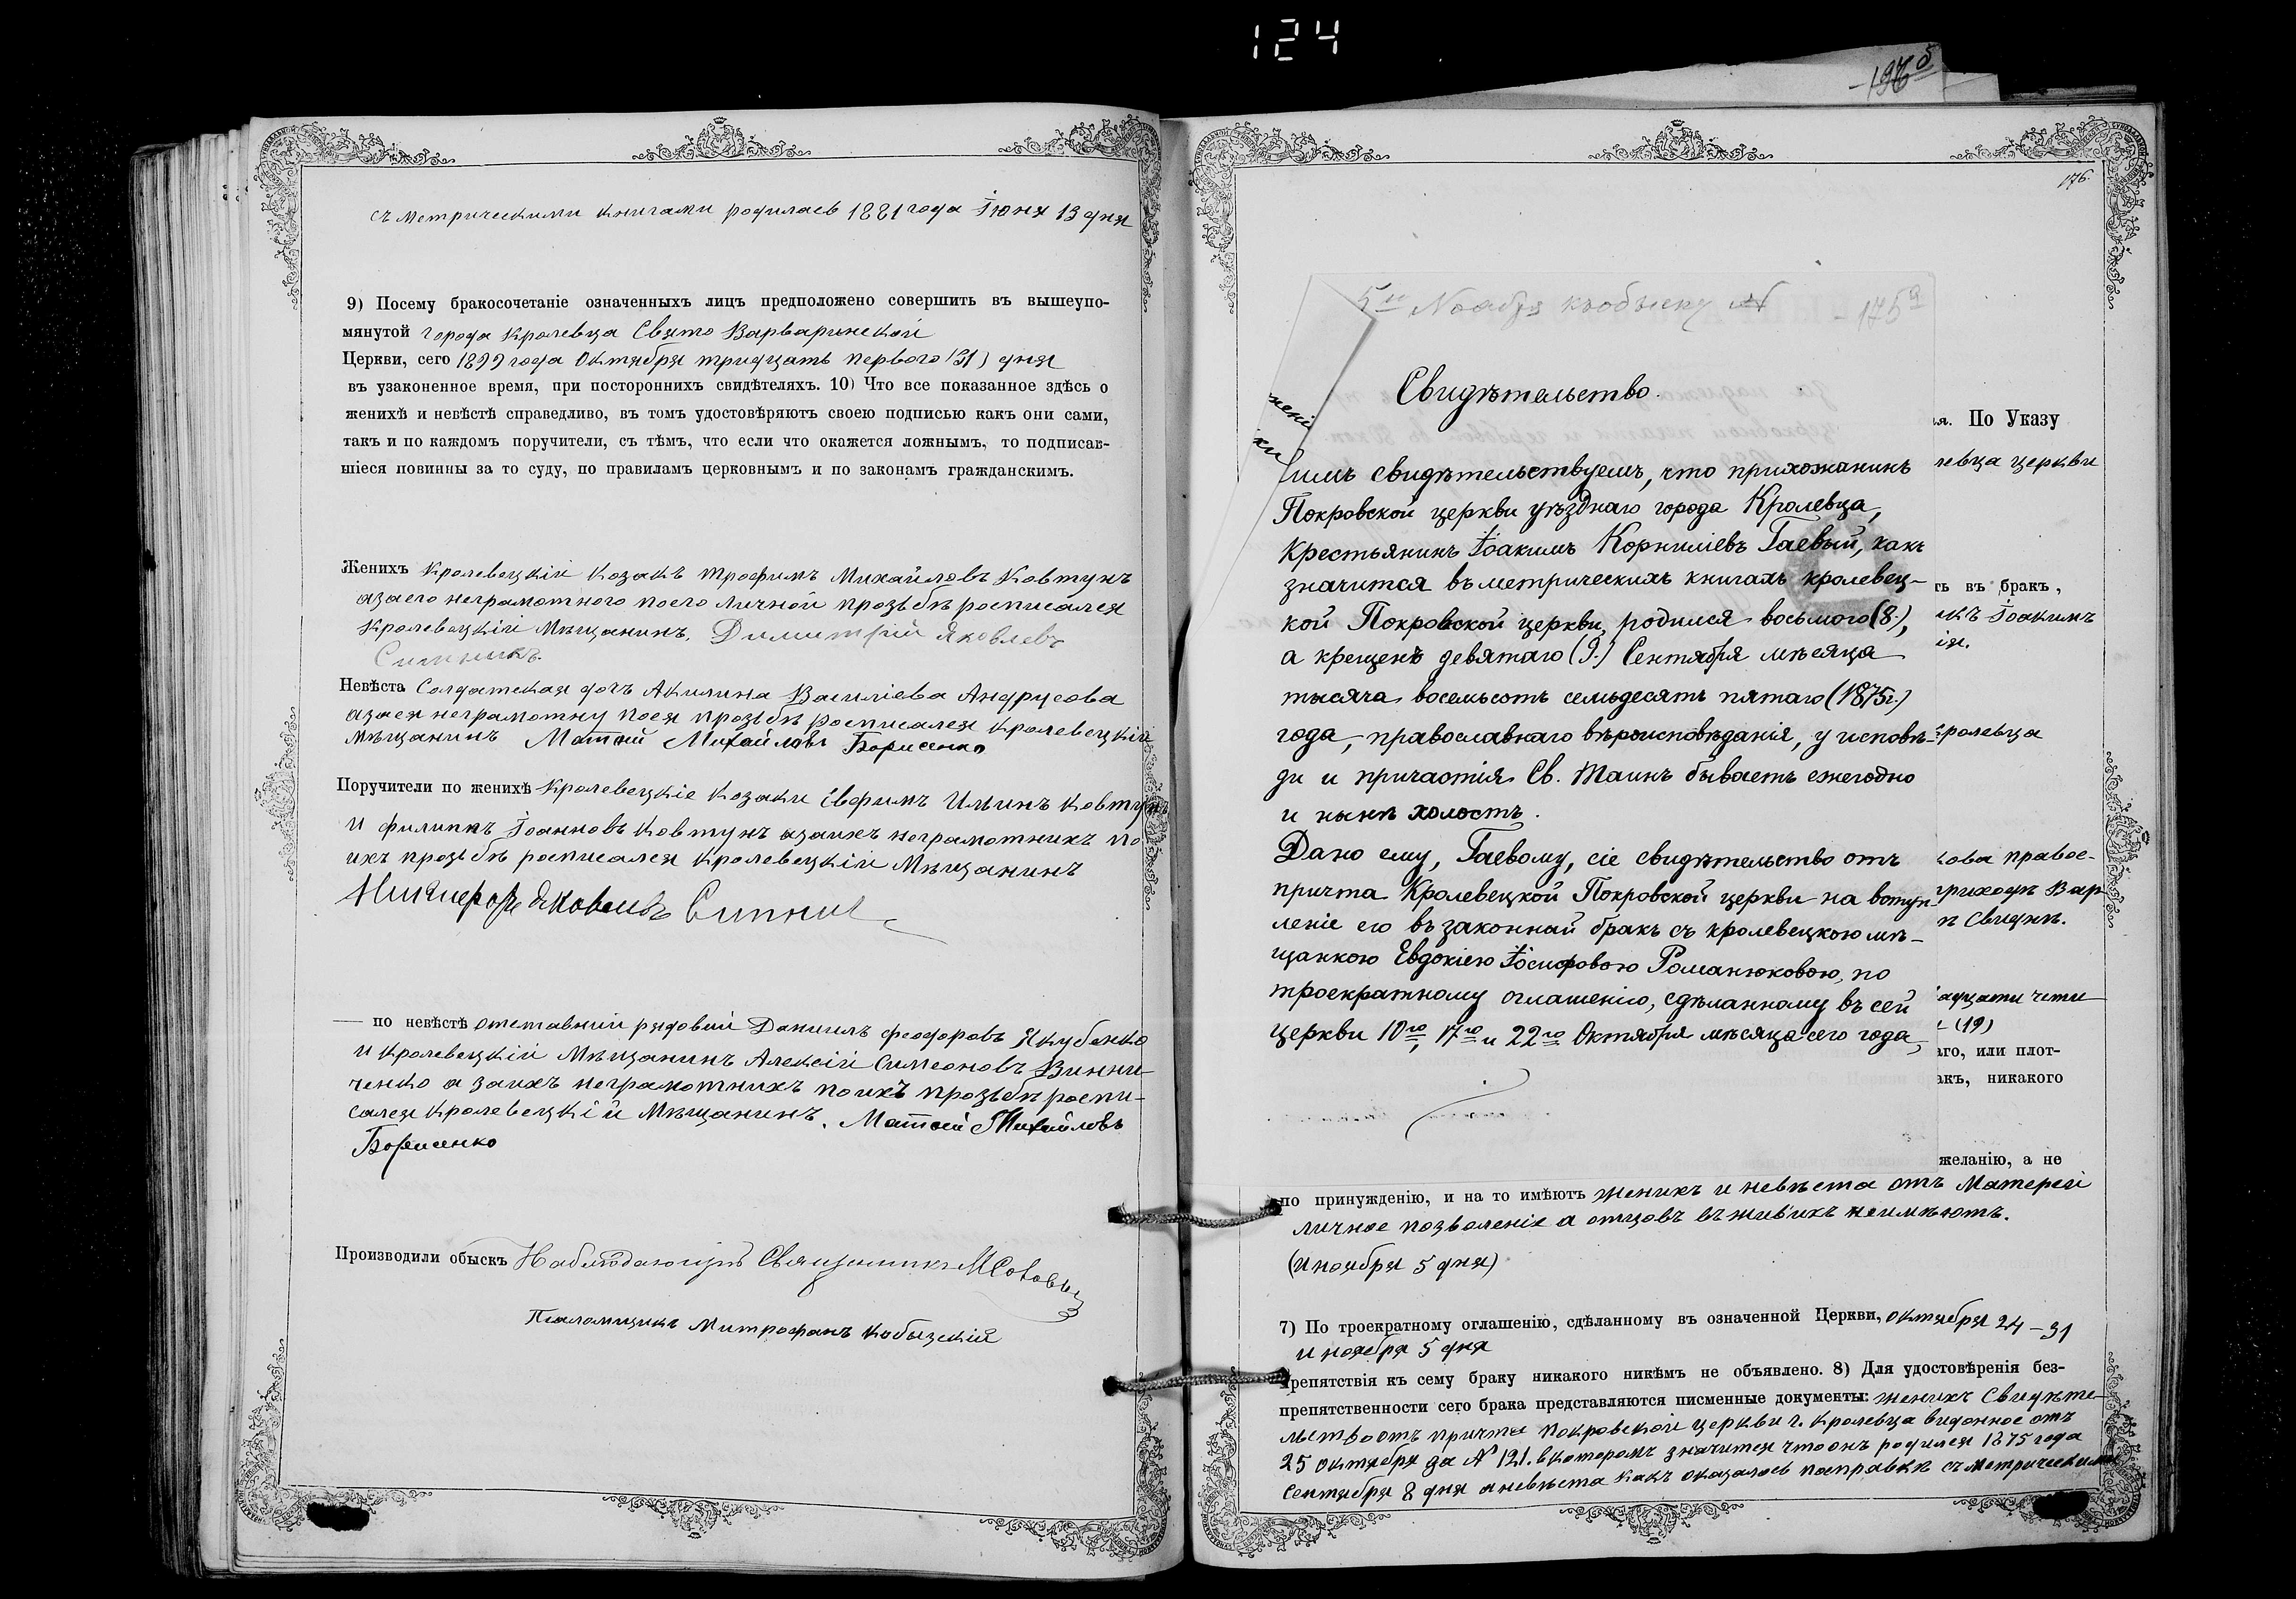 124
съ метрическими книгами родилась 1881 года Іюня 13 дня
9) Посему бракосочетаніе означенныхъ лицъ предположено совершить въ вышеупо-
мянутой города Кролевца Свято Варваринской
Церкви, сего 1899 года Октября тридцать перваго (31) дня
въ узаконенное время, при постороннихъ свидѣтеляхъ. 10) Что все показанное здѣсь о
женихѣ и невѣстѣ справедливо, въ томъ удостовѣряютъ своею подписью какъ они сами,
такъ и по каждомъ поручители, съ тѣмъ, что если что окажется ложнымъ, то подписав-
шіеся повинны за то суду, по правиламъ церковнымъ и по законамъ гражданскимъ.
Женихъ Кролевецкій Козакъ Трофимъ Михайловъ Ковтунъ
азаего неграмотного поего личной прозьбѣ росписался
Кролевецкій Мѣщанинъ. Димитрій Яковлевъ
Невѣста Солдатская дочь Акилина Василіева Андрусова
азаея неграмотну поея прозьбѣ росписался Кролевецкій
Мѣщанинъ Матѳей Михайловъ Борисенко
Поручители по женихѣ Кролевецкіе Козаки Евфимъ Ильинъ Ковтунъ
и Филиппъ Іоанновъ Ковтунъ азаихъ неграмотнихъ по
ихъ прозьбѣ росписался Кролевецкій Мѣщанинъ
Яковлевъ
— по невѣстѣ отставний рядовий Даниилъ Феодоровъ Якубенко
и Кролевецкій Мѣщанинъ Алексій Симеоновъ Винни-
ченко а заихъ неграмотнихъ поихъ прозьбѣ роспи-
сался Кролевецкій Мѣщанинъ. Матѳей Михайловъ
Борисенко
Производили обыскъ Наблюдающій Священникъ
Псаломщикъ Митрофанъ Кобызскій
176.
5го Ноября къобыску № - 175
Свидѣтельство.
я. По Указу
левца церкви
симъ свидѣтельствуемъ, что прихожанинъ
Покровской церкви уѣзднаго города Кролевца,
крестьянинъ Іоакимъ Корниліевъ Гаевый, какъ
значится въ метрическихъ книгахъ кролевец-
кой Покровской церкви, родился восьмого (8.),
а крещенъ девятаго (9.) Сентября мѣсяца
тысяча восемьсотъ семьдесятъ пятаго (1875г.)
года, православнаго вѣроисповѣданія, у исповѣ-
ди и причастія Св. Таинъ бываетъ ежегодно
и нынѣ холостъ.
Дано ему, Гаевому, сіе свидѣтельство отъ
причта Кролевецкой Покровской церкви на вступ-
леніе его въ законный бракъ съ кролевецкою мѣ-
щанкою Евдокіею Іосифовою Романюковою, по
троекратному оглашенію, сдѣланному въ сей
церкви 10го, 17го и 22го Октября мѣсяца сего года,
ь въ бракъ,
Іоакимъ
Кролевца
кова правос-
приходъ Вар
адцати четы
(19)
аго, или плот-
акъ, никакого
желанію, а не
по принужденію, и на то имѣютъ женихъ и невѣста отъ Матерей
личное позволеніе а отцовъ въ живихъ неимѣютъ.
(и ноября 5 дня)
7) По троекратному оглашенію, сдѣланному въ означенной Церкви, октября 24 – 31
и ноября 5 дня
препятствія къ сему браку никакого никѣмъ не объявлено. 8) Для удостовѣренія без-
препятственности сего брака представляются писменные документы: женихъ Свидѣте-
льство отъ причта Покровской церкви г. Кролевца виданное отъ
25 октября за № 121. вкоторомъ значится что онъ родился 1875 года
Сентября 8 дня аневѣста какъ оказалось посправкѣ съ метрическими